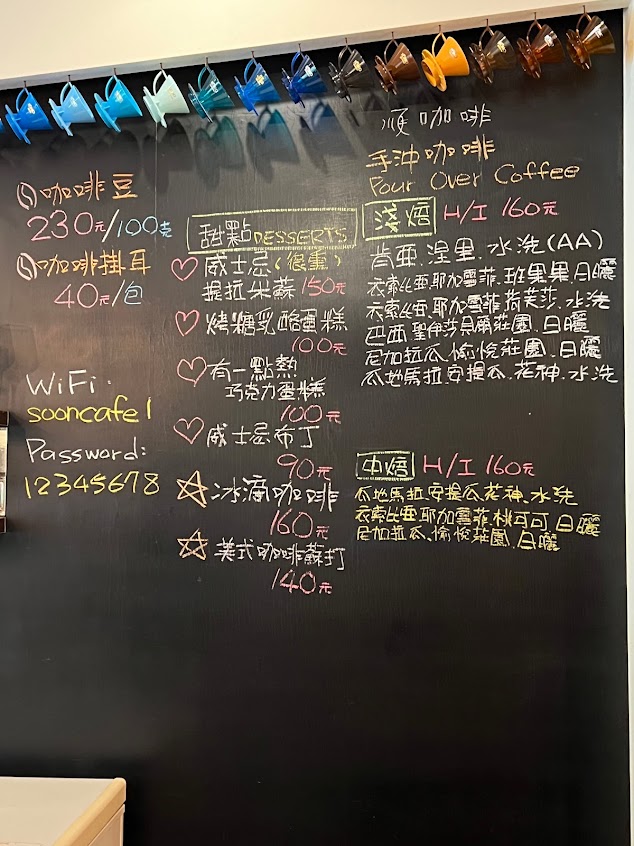 咖啡豆
230元/100克
咖啡掛耳
40元/包
WiFi:
sooncafe1
Password:
12345678
甜點 DESSERTS
威士忌(很重)
提拉米蘇 150元
烤糖乳酪蛋糕
100元
有一點熱
巧克力蛋糕
100元
威士忌布丁
90元
冰滴咖啡
160元
美式咖啡蘇打
140元
順咖啡
手沖咖啡
Pour Over Coffee
淺焙 H/I 160元
肯亞.涅里.水洗(AA)
衣索比亞.耶加雪菲.班果果.日曬
衣索比亞.耶加雪菲荷芙莎.水洗
巴西聖伊莎貝爾莊園.日曬
尼加拉瓜.愉悅莊園.日曬
瓜地馬拉安提瓜.花神.水洗
中焙 H/I 160元
瓜地馬拉.安提瓜.花神.水洗
衣索比亞.耶加雪菲.桃可可.日曬
尼加拉瓜.愉悅莊園.日曬